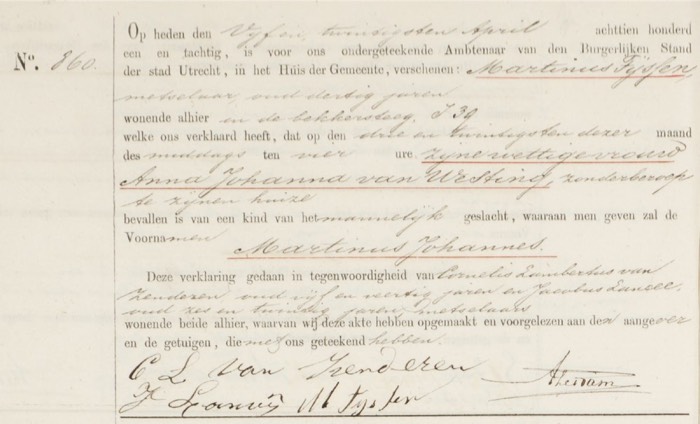 Op heden den Vijf en twintigsten April achttien honderd
een en tachtig, is voor ons ondergeteekende Ambtenaar van den Burgerlijken Stand
No. 860.
der stad Utrecht, in het Huis der Gemeente, verschenen: Martinus Tijssen,
metselaar, oud dertig jaren
wonende alhier in de bekkersteeg, I 39
welke ons verklaard heeft, dat op den drie en twintigsten dezer maand
des middags ten vier ure zijne wettige vrouw
Anna Johanna van Westing, zonder beroep
te zijnen huize
bevallen is van een kind van het mannelijk geslacht, waaraan men geven zal de
Voornamen
Martinus Johannes.
Deze verklaring gedaan in tegenwoordigheid van Cornelis Lambertus van
Zenderen oud vijf en veertig jaren en Jacobus
oud zes en twintig jaren, metselaars
wonende beide alhier, waarvan wij deze akte hebben opgemaakt en voorgelezen aan den aangever
en de getuigen, die met ons geteekend hebben.
C L van Zenderen
M Tyssen